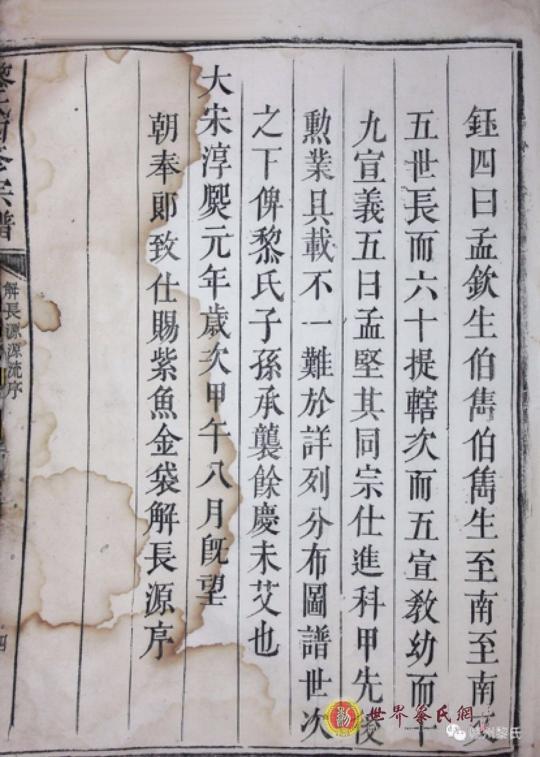 鈺四曰孟欽生伯雋伯雋生至南至南文
五世長而六十提轄次而五宣教幼而十
九宣義五曰孟堅其同宗仕進科甲先後
勲業具載不一難於詳列分布圖譜世次
之下俾黎氏子孫承襲餘慶未艾也
大宋淳熈元年歲次甲午八月旣望
朝奉郎致仕賜紫魚金袋解長源序
宗譜
解長源源流序
四
世界黎氏網
黎氏